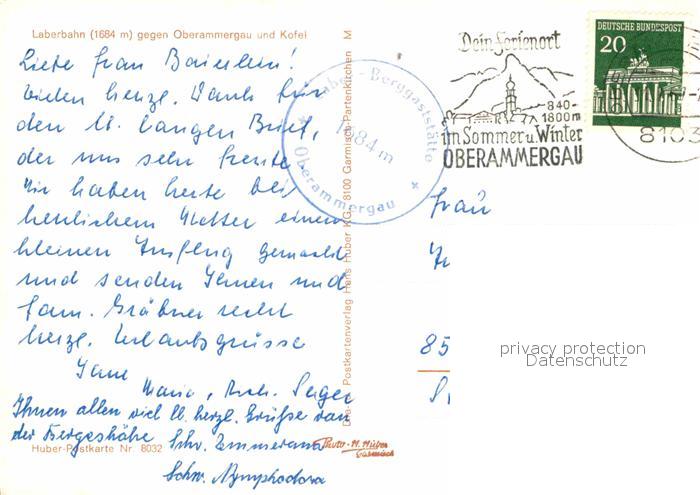 Laberbahn (1684 m) gegen Oberammergau und Kofel
Liebe Frau Baierlein!
Vielen herzl. Dank für
den lb. langen Brief,
der uns sehr freute
Wir haben heute bei
herrlichem Wetter einen
kleinen Ausflug gemacht
und senden Ihnen und
Fam. Gräbner recht
herzl. Urlaubsgrüsse
Maria,
Ihnen allen viel lb. herzl. Grüße von
der Bergeshöhe Schw. Emmerana
Schw. Nymphodora
Huber-Postkarte Nr. 8032
Photo-H. Huber
Garmisch
Postkartenverlag Hans Huber KG, 8100 Garmisch-Partenkirchen M
Laber-Berggaststätte
1684 m
Oberammergau
Dein Ferienort
840-
1800 m
im Sommer u. Winter
OBERAMMERGAU
DEUTSCHE BUNDESPOST
20
8103
Frau
85
privacy protection
Datenschutz